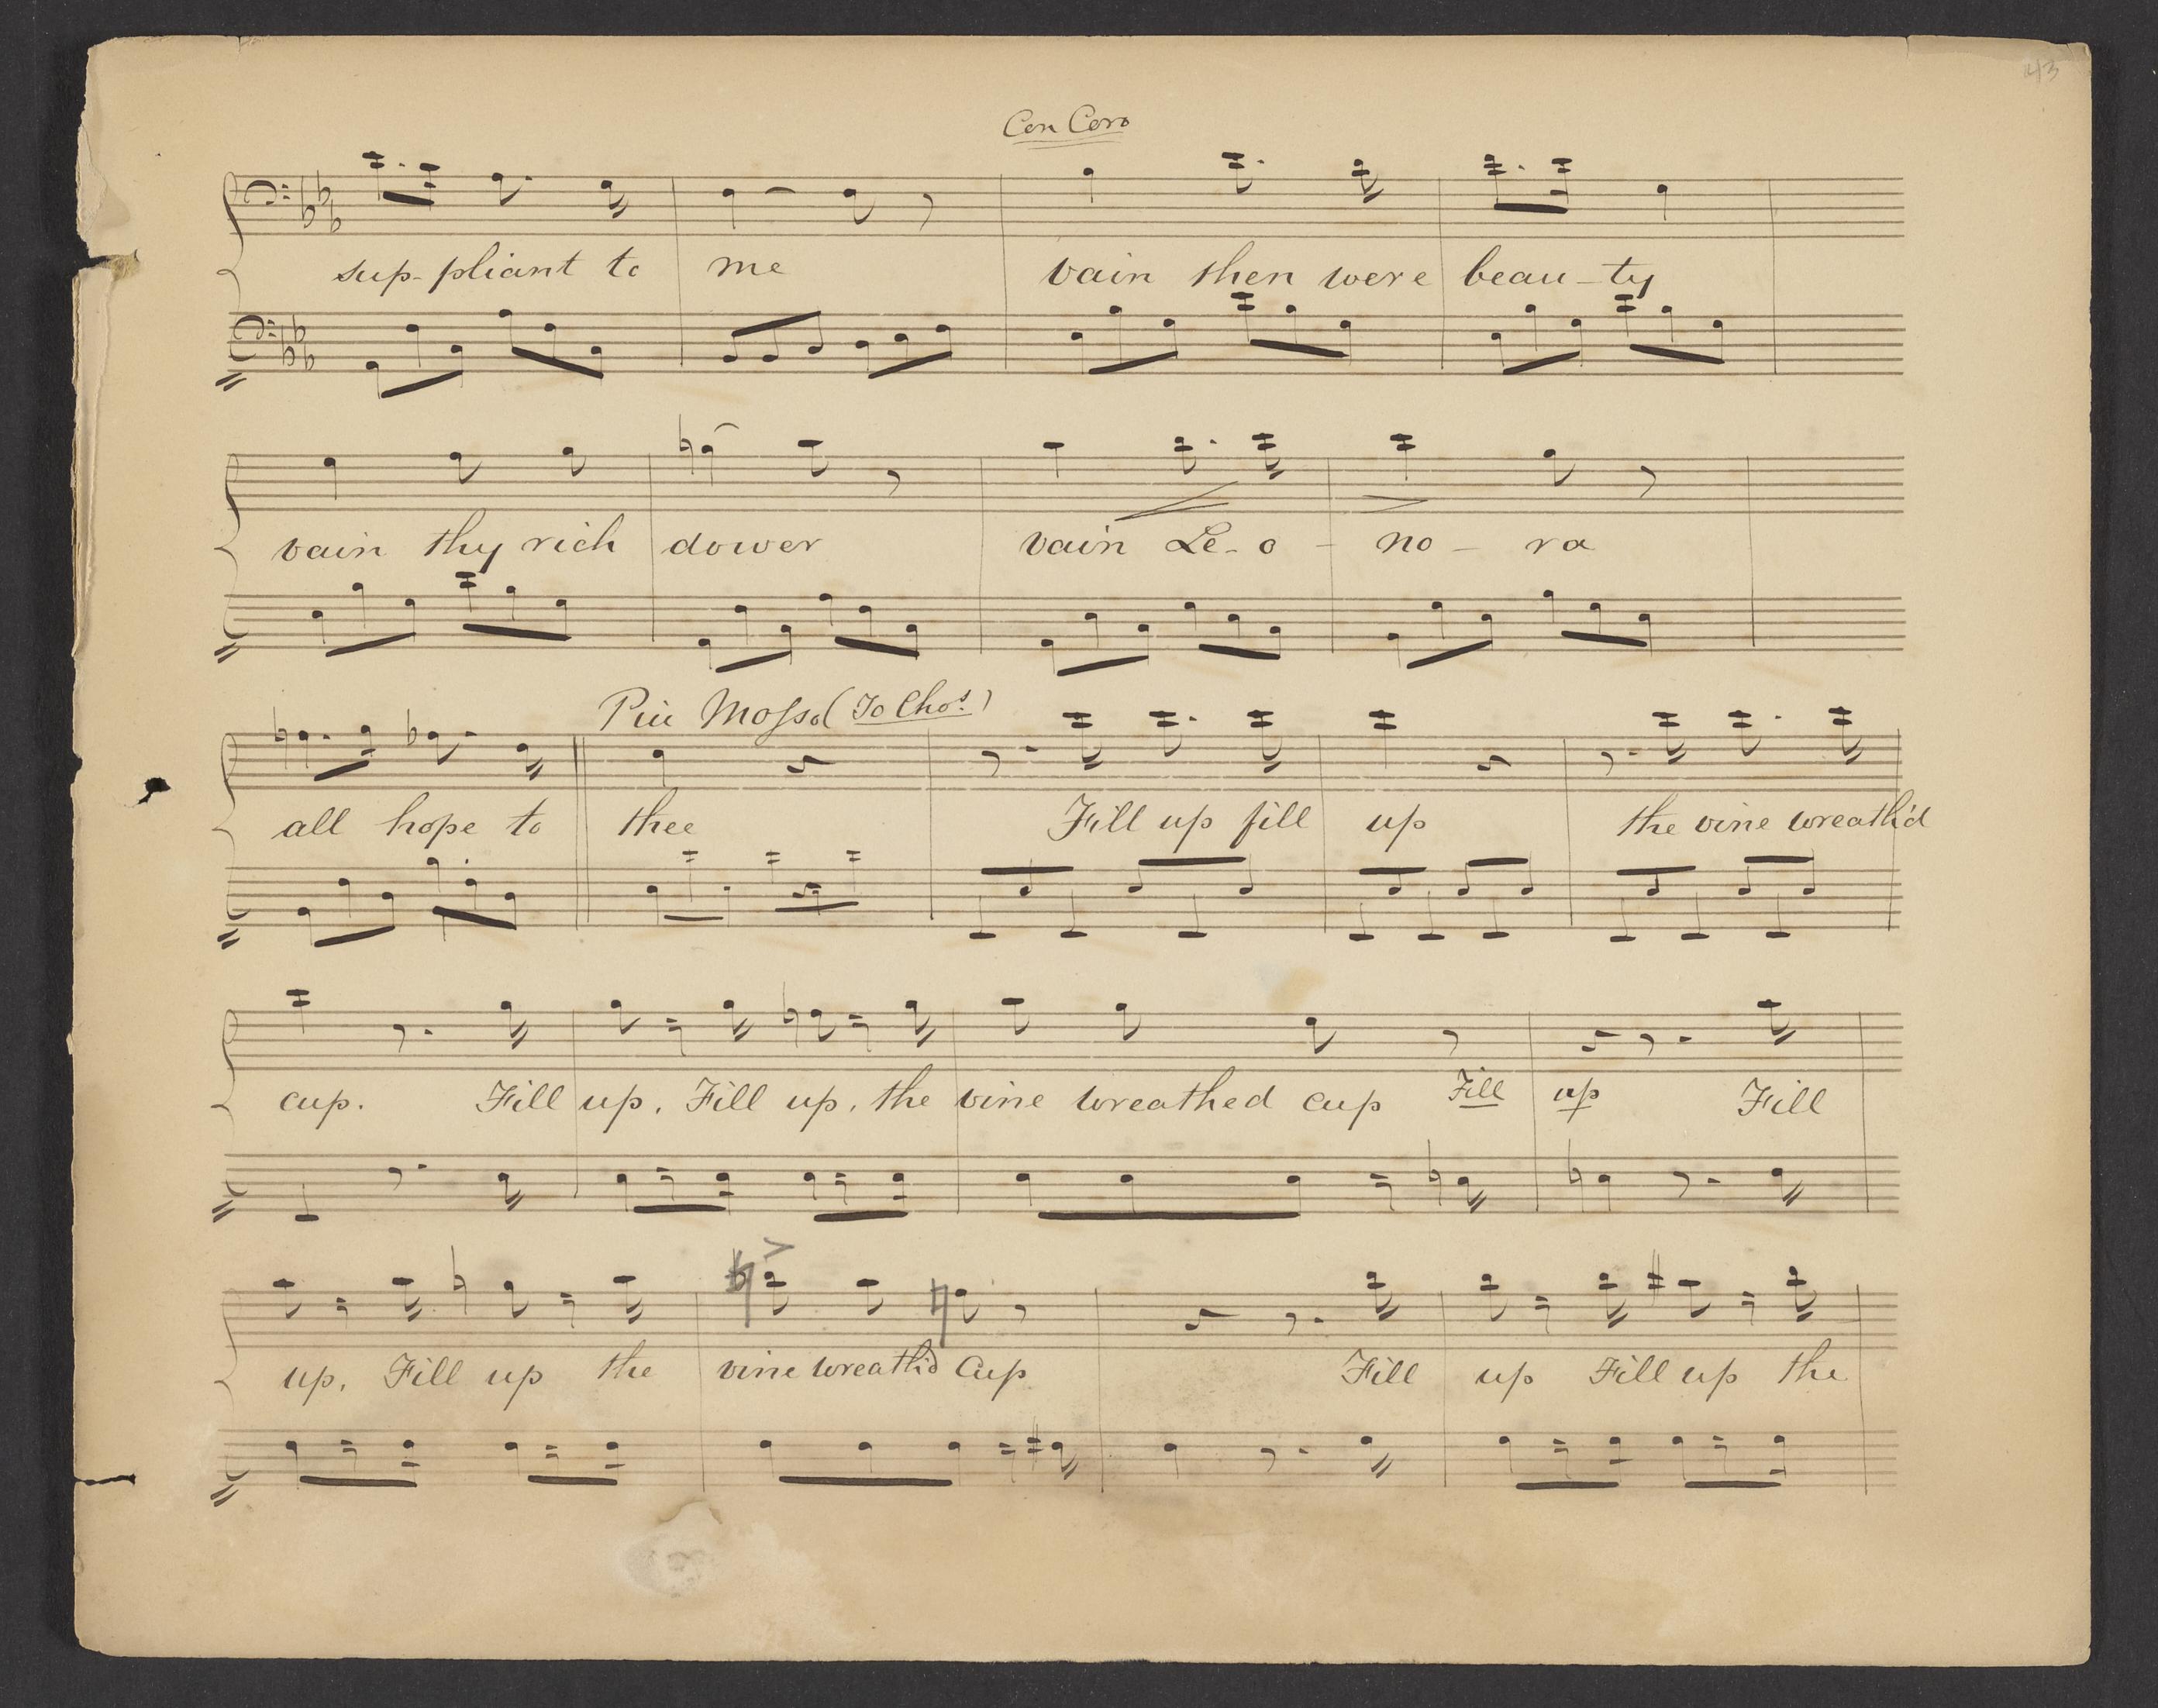 43
Con Coro
sup-pliant to me vain then were beau-ty
vain thy rich dower vain Le-o-no-ra
Piu Mosso (To Chos.)
all hope to thee Fill up fill up the vine wreath'd
cup. Fill up, Fill up, the vine wreathed cup Fill up Fill
up, Fill up the vine wreath'd Cup Fill up Fill up the